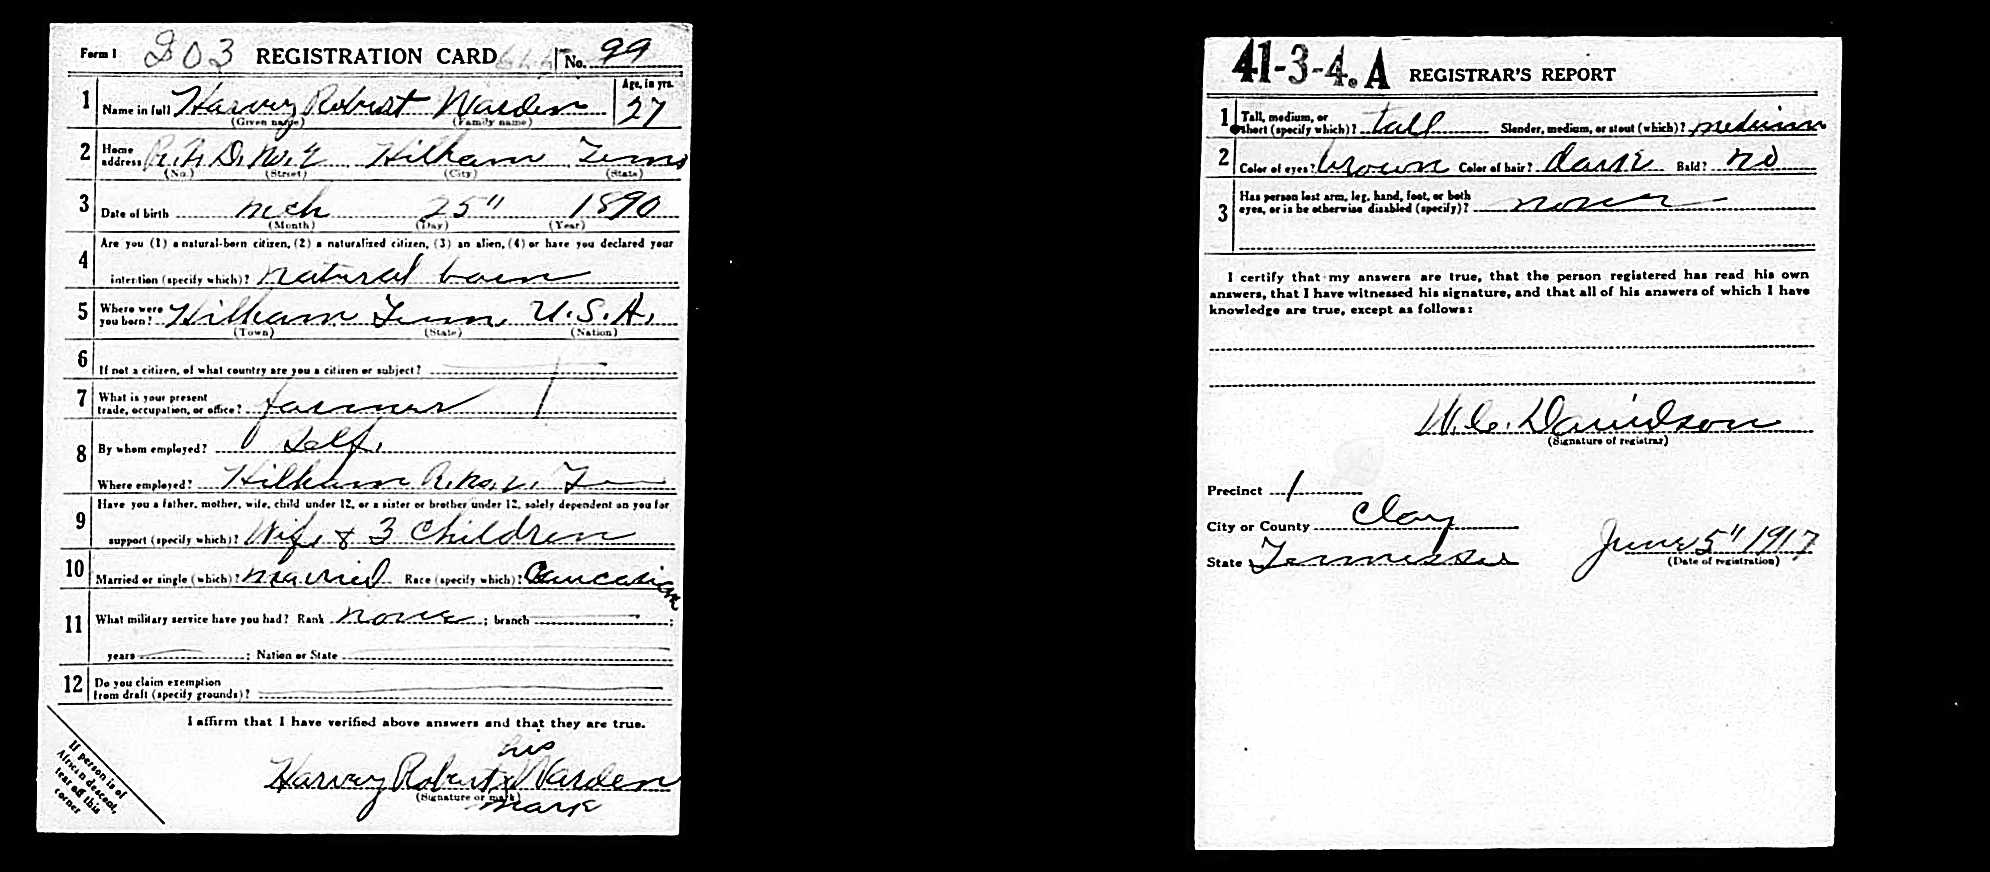 Form 1 203 REGISTRATION CARD No. 99
1 Name in full Harvey Robert Warden Age, in yrs. 27
(Given name) (Family name)
2 Home address R.F.D. No. 2 Hilham Tenns
(No.) (Street) (City) (State)
3 Date of birth Mch 25" 1890
(Month) (Day) (Year)
4 Are you (1) a natural-born citizen, (2) a naturalized citizen, (3) an alien, (4) or have you declared your
intention (specify which)? natural born
5 Where were you born? Hilham Tenn. U.S.A.
(Town) (State) (Nation)
6 If not a citizen, of what country are you a citizen or subject?
7 What is your present
trade, occupation, or office? farmer
8 By whom employed? Self.
Where employed? Hilham R. No. 2.
9 Have you a father, mother, wife, child under 12, or a sister or brother under 12, solely dependent on you for
support (specify which)? Wife & 3 Children
10 Married or single (which)? married Race (specify which)? Caucasian
11 What military service have you had? Rank none ; branch ;
years ; Nation or State
12 Do you claim exemption
from draft (specify grounds)?
I affirm that I have verified above answers and that they are true.
his
Harvey Robert x Warden
(Signature or mark)
mark
If person is of
African descent,
tear off this
corner
41-3-4. A REGISTRAR'S REPORT
1 Tall, medium, or
short (specify which)? tall Slender, medium, or stout (which)? medium
2 Color of eyes? brown Color of hair? dark Bald? no
3 Has person lost arm, leg, hand, foot, or both
eyes, or is he otherwise disabled (specify)? none
I certify that my answers are true, that the person registered has read his own
answers, that I have witnessed his signature, and that all of his answers of which I have
knowledge are true, except as follows:
W. C. Davidson
(Signature of registrar)
Precinct 1
City or County Clay
State Tennessee June 5" 1917
(Date of registration)